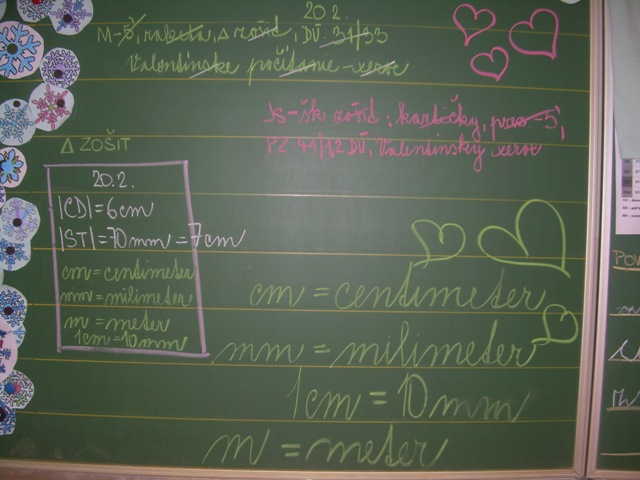 20.2.
M-5, raketa, Δ zošit, DÚ: 31/33
Valentínske počítanie - xerox
JS-šk zošit, kartičky, prac-5,
PZ 41/1,2 DÚ, Valentínsky xerox
Δ ZOŠIT
20.2.
|CD|=6cm
|ST|=70mm=7cm
cm=centimeter
mm=milimeter
m=meter
1cm=10mm
cm=centimeter
mm=milimeter
1cm=10mm
m=meter